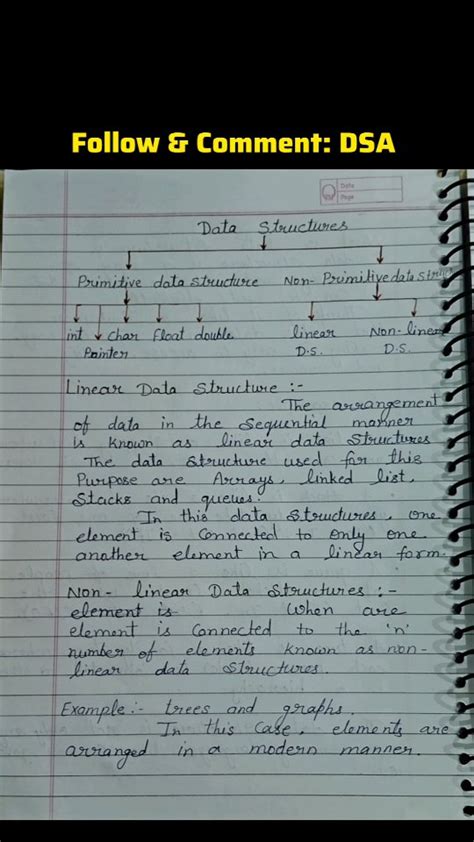 Follow & Comment: DSA
Date
Page
Data Structures
Primitive data structure Non-Primitive data struct
int char float double linear Non-linear
Pointer D.S. D.S.
Linear Data Structure :-
The arrangement
of data in the sequential manner
is known as linear data structures
The data structure used for this
Purpose are Arrays, linked list,
Stacks and queues.
In this data structures, one
element is connected to only one
another element in a linear form.
Non-linear Data Structures :-
element is when are
element is connected to the 'n'
number of elements known as non-
linear data structures.
Example :- trees and graphs.
In this case, elements are
arranged in a modern manner.